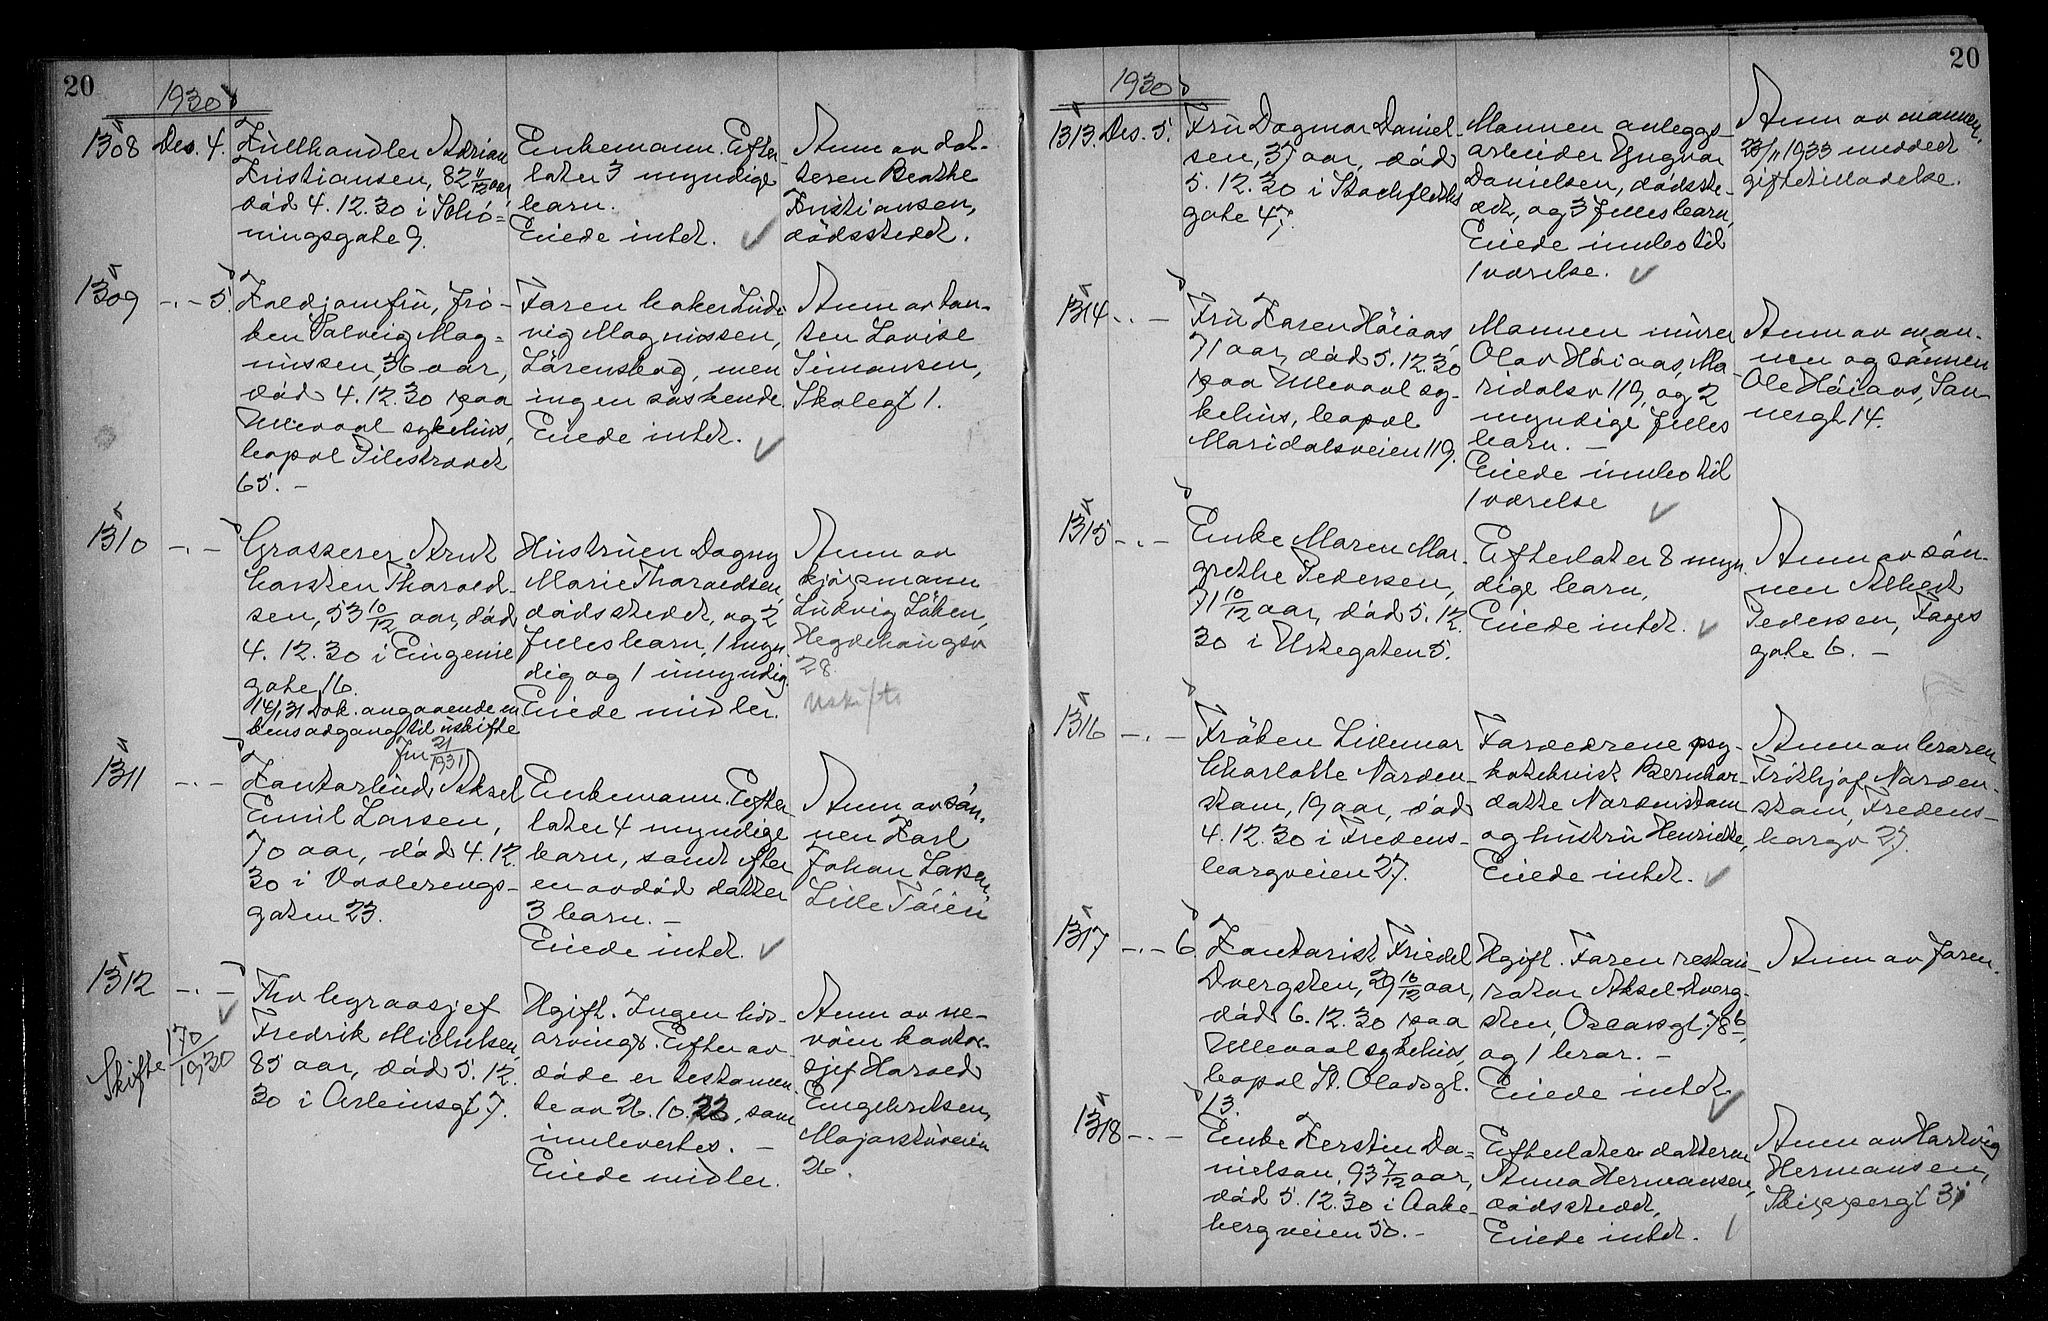 20
1930
1308 Des. 4. Kullhandler Adrian
Kristiansen, 82 11/12 aar,
död 4.12.30 i Schö=
ningsgate 9.
Enkemann. Efter-
later 3 myndige
barn.
Eiede intet.
Anm av dat-
teren Beathe
Kristiansen,
dödsstedet.
1309 -.- 5. Koldjomfru, frö-
ken Solveig Mag=
nussen, 36 aar,
död 4.12.30 paa
Ullevaal sykehus,
bopæl Pilestrædet
65. -
Faren baker Lud-
vig Magnussen,
Lörenskog, men
ingen söskende.
Eiede intet.
Anm av tan-
ten Lovise
Simonsen,
Skolegt 1.
1310 -.- Grosserer Arnt
Karsten Thorvald-
sen, 53 10/12 aar, död
4.12.30 i Eugenie
gate 16.
14/1 31 Dok. angaaende en
kens adgang til uskifte
Jnr 21/1931
Hustruen Dagny
Marie Thoraldsen,
dödsstedet, og 2
felles barn, 1 myn
dig og 1 umyndig.
Eiede midler.
Anm av
kjöpmann
Ludvig Löken,
Hegdehaugsv
28.
Uskifte
1311 -.- Kontorbud Aksel
Emil Larsen,
70 aar, död 4.12.
30 i Vaalerengs-
gaten 23.
Enkemann. Efter
later 4 myndige
barn, samt efter
en avdöd datter
3 barn. -
Eiede intet.
Anm av sön-
nen Karl
Johan Larsen
Lille Töien
1312 -.- Fhv byraasjef
Fredrik Michelsen,
85 aar, död 5.12.
30 i Arbeinsgt 7.
Skifte 170/1930
Ugift. Ingen livs-
arvinge. Efter av-
döde er testamen
te av 26.10.22, som
innlevertes. -
Eiede midler.
Anm av ne-
vöen kontor-
sjef Harald
Engebretsen,
Majorstuveien
26.
20
1930
1313. Des. 5. Fru Dagmar Daniel-
sen, 37 aar, död
5.12.30 i Stockfleths
gate 47.
Mannen anleggs-
arbeider Yngvar
Danielsen, dödsste-
det, og 3 felles barn,
Eiede innbo til
1 værelse.
Anm av mannen.
23/11 1933 meddelt
giftetilladelse.
1314 -.- Fru Karen Höiaas,
71 aar, död 5.12.30
paa Ullevaal sy-
kehus, bopæl
Maridalsveien 119.
Mannen murer
Olav Höiaas, Ma-
ridalsv 119, og 2
myndige felles
barn. -
Eiede innbo til
1 værelse
Anm av man-
nen og sönnen
Ole Höiaas, San-
nergt 14.
1315 -.- Enke Maren Mar-
grethe Pedersen,
71 10/12 aar, död 5.12.
30 i Urtegaten 5.
Efterlater 8 myn
dige barn,
Eiede intet.
Anm av sön-
nen Albert
Pedersen, Tøyes
gate 6. -
1316 -.- Fröken Lillemor
Charlotte Norden-
stam, 19 aar, död
4.12.30 i Fredens-
borgveien 27.
Foreldrene psy-
koteknist Bernhar-
dotte Nordenstam
og hustru Henriette,
Eiede intet.
Anm av broren
Frithjof Norden-
stam, Fredens-
borgv 27.
1317 -.- 6. Kontorist Friedel
Dvergsten, 29 10/12 aar,
död 6.12.30 paa
Ullevaal sykehus,
bopæl St. Olavsgt.
13.
Ugift. Faren restau-
ratør Aksel Dverg-
sten, Oscarsgt 78 b,
og 1 bror. -
Eiede intet.
Anm av faren.
1318 -.- Enke Kerstin Da=
nielson, 93 7/12 aar,
död 5.12.30 i Aake-
bergveien 50. -
Efterlater datteren
Anna Hermansen,
dödsstedet,
Eiede intet.
Anm av Hartvig
Hermansen,
Skippergt 31